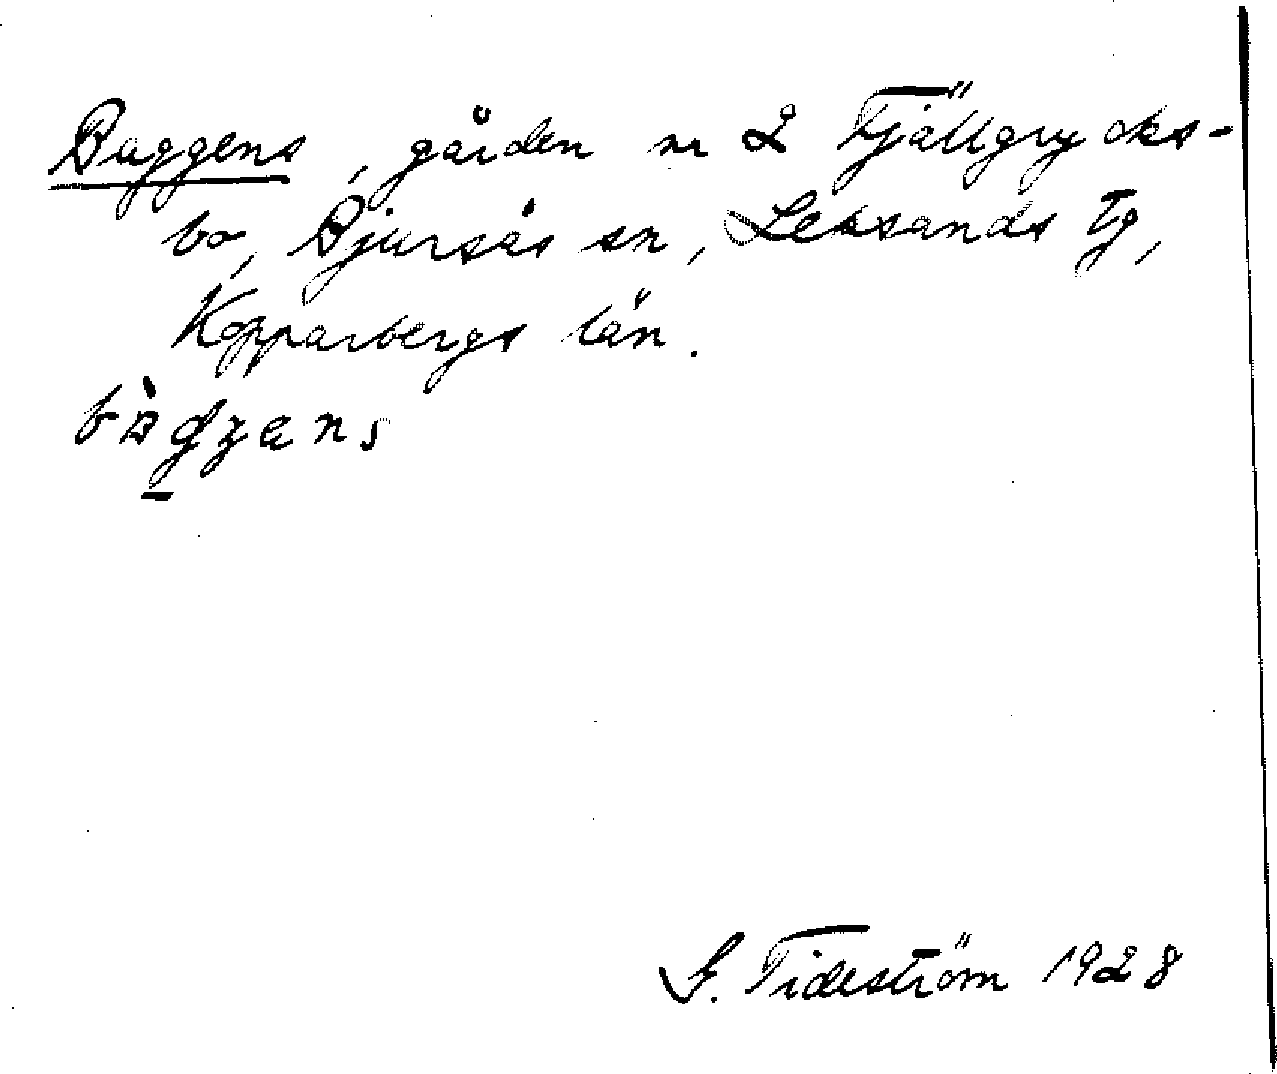 Baggens, gården nr 2 Fjällgrycks-
bo, Bjursås sn, Leksands tg,
Kopparbergs län.
G. Tideström 1928